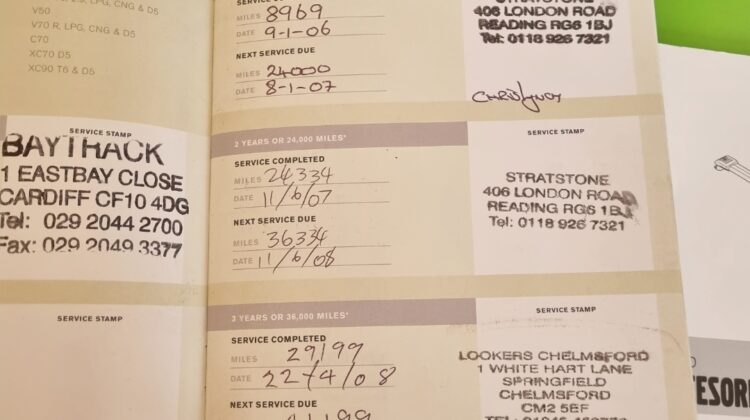 LPG, CNG & D5
V50
V70 R, LPG, CNG & D5
C70
XC70 D5
XC90 T6 & D5
SERVICE STAMP
BAYTRACK
1 EASTBAY CLOSE
CARDIFF CF10 4DG
Tel: 029 2044 2700
Fax: 029 2049 3377
SERVICE STAMP
MILES 8969
DATE 9-1-06
NEXT SERVICE DUE
MILES 24000
DATE 8-1-07
STRATSTONE
406 LONDON ROAD
READING RG6 1BJ
Tel: 0118 926 7321
2 YEARS OR 24,000 MILES*
SERVICE COMPLETED
MILES 24334
DATE 11/6/07
NEXT SERVICE DUE
MILES 36334
DATE 11/6/08
SERVICE STAMP
STRATSTONE
406 LONDON ROAD
READING RG6 1BJ
Tel: 0118 926 7321
3 YEARS OR 36,000 MILES*
SERVICE COMPLETED
MILES 29199
DATE 22/4/08
NEXT SERVICE DUE
SERVICE STAMP
LOOKERS CHELMSFORD
1 WHITE HART LANE
SPRINGFIELD
CHELMSFORD
CM2 5EF